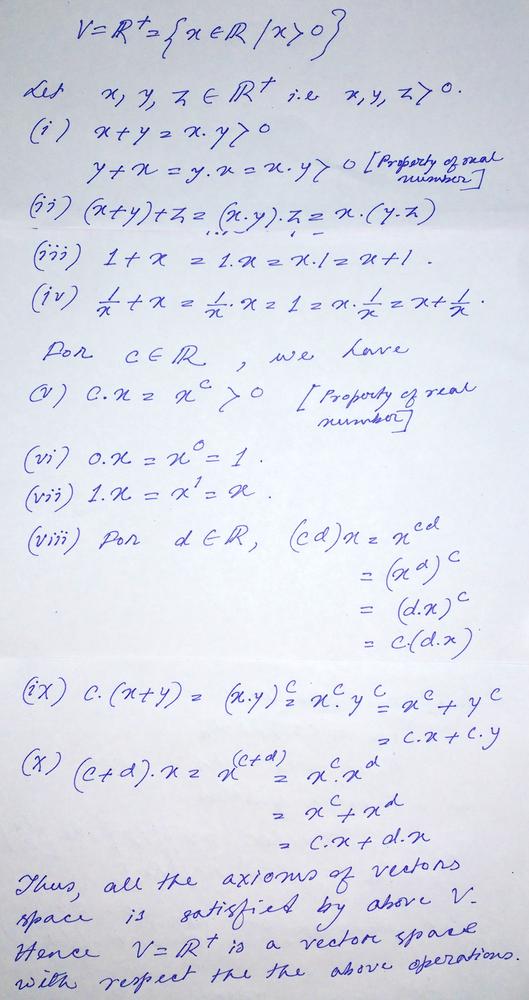 V = ℝ⁺ = {x ∈ ℝ / x > 0}
Let x, y, z ∈ ℝ⁺ i.e x, y, z > 0.
(i) x + y = x·y > 0
y + x = y·x = x·y > 0 [Property of real number]
(ii) (x+y)+z = (x·y)·z = x·(y·z)
(iii) 1 + x = 1·x = x·1 = x+1.
(iv) 1/x + x = 1/x · x = 1 = x·1/x = x + 1/x.
For c ∈ ℝ, we have
(v) c·x = x^c > 0 [Property of real number]
(vi) 0·x = x⁰ = 1.
(vii) 1·x = x¹ = x.
(viii) For d ∈ ℝ, (cd)x = x^cd
= (x^d)^c
= (d.x)^c
= c.(d.x)
(ix) c.(x+y) = (x.y)^c = x^c. y^c = x^c + y^c
= c.x + c.y
(x) (c+d).x = x^(c+d) = x^c. x^d
= x^c + x^d
= c.x + d.x
Thus, all the axioms of vectors
space is satisfied by above V.
Hence V = ℝ⁺ is a vector space
with respect the the above operations.